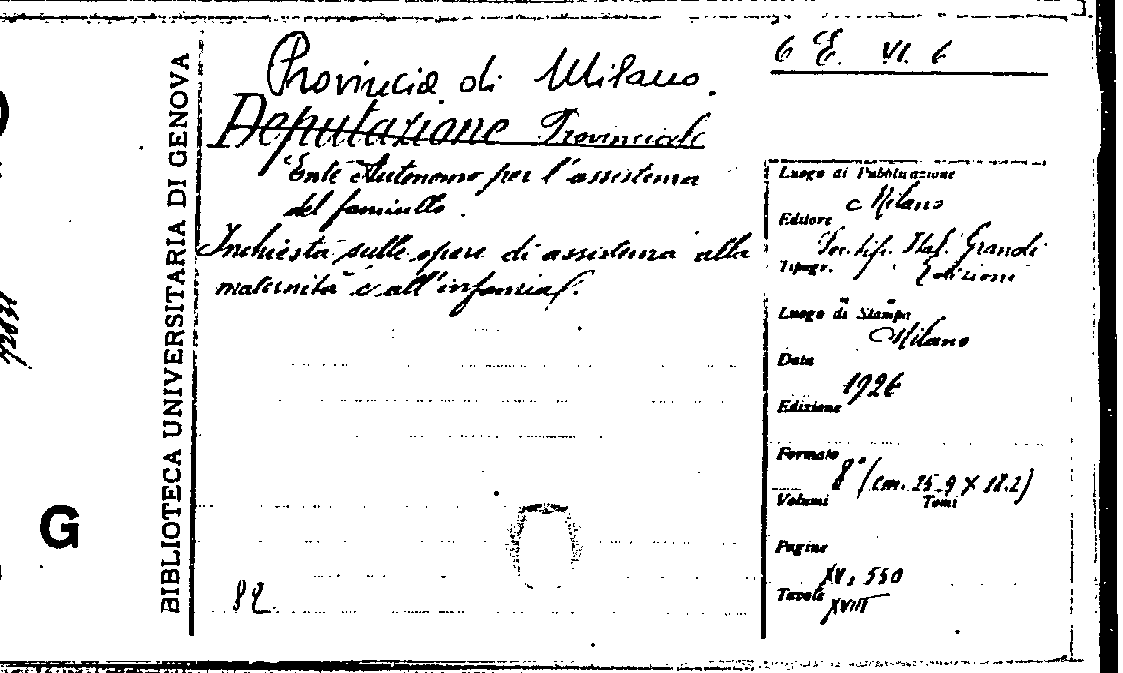 BIBLIOTECA UNIVERSITARIA DI GENOVA
G
Provincia di Milano.
Deputazione Provinciale
Ente Autonomo per l'assistenza
del fanciullo.
Inchiesta sulle opere di assistenza alla
maternità e all'infanzia.
82
6 E. VI. 6
Luogo di Pubblicazione
Milano
Editore
Soc. tip. Ital. Grandi
Tipogr. Edizioni
Luogo di Stampa
Milano
Data
1926
Edizione
Formato
8° (cm. 25.9 X 18.2)
Volumi Tomi
Pagine
XV, 550
Tavole
XVIII